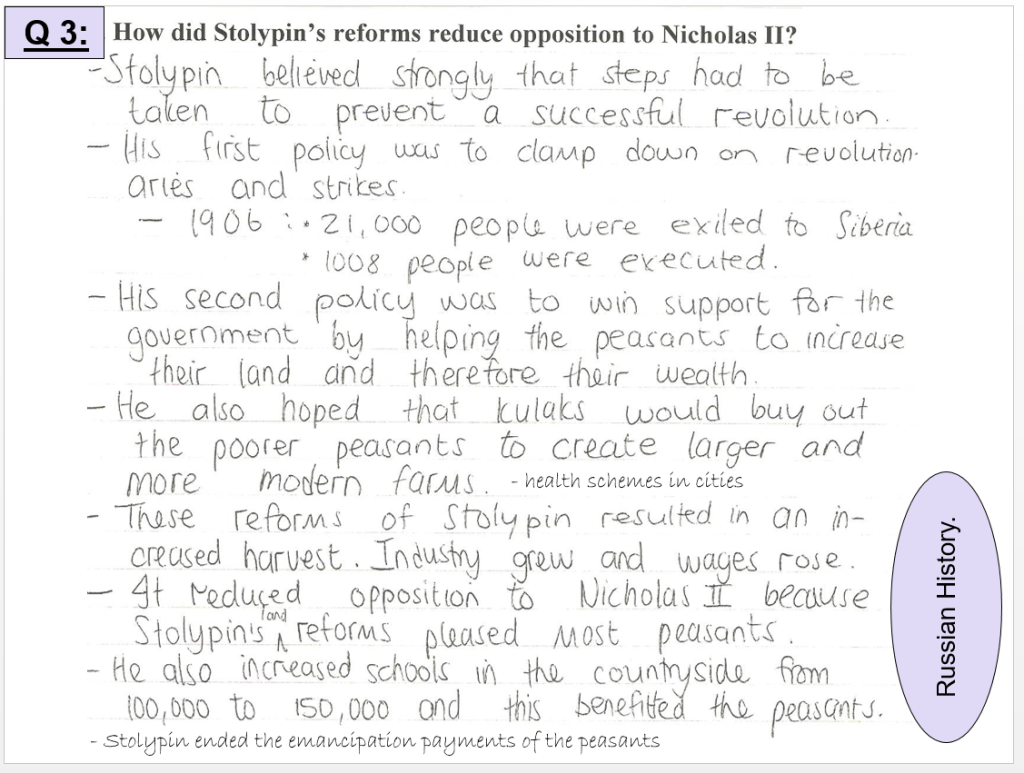 Q 3: How did Stolypin's reforms reduce opposition to Nicholas II?
-Stolypin believed strongly that steps had to be
taken to prevent a successful revolution.
- His first policy was to clamp down on revolution-
aries and strikes.
- 1906 : • 21,000 people were exiled to Siberia
* 1008 people were executed.
- His second policy was to win support for the
government by helping the peasants to increase
their land and therefore their wealth.
- He also hoped that kulaks would buy out
the poorer peasants to create larger and
more modern farms. - health schemes in cities
- These reforms of Stolypin resulted in an in-
creased harvest. Industry grew and wages rose.
- It reduced opposition to Nicholas II because
Stolypin's land reforms pleased most peasants.
- He also increased schools in the countryside from
100,000 to 150,000 and this benefitted the peasants.
- Stolypin ended the emancipation payments of the peasants
Russian History.